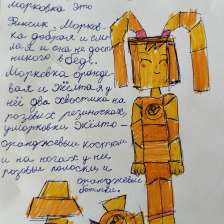 морковка это
Рексик. Морков-
ка добрая и сме-
лая и она не дост
никого в бед.
Морковка оранже-
вая и жёлтая у
неё два хвостика на
розовых резиночках,
у морковки жёлто-
оранжевый костюм
и на ногах у неё
розовые полоски и
оранжевые
ботинки.